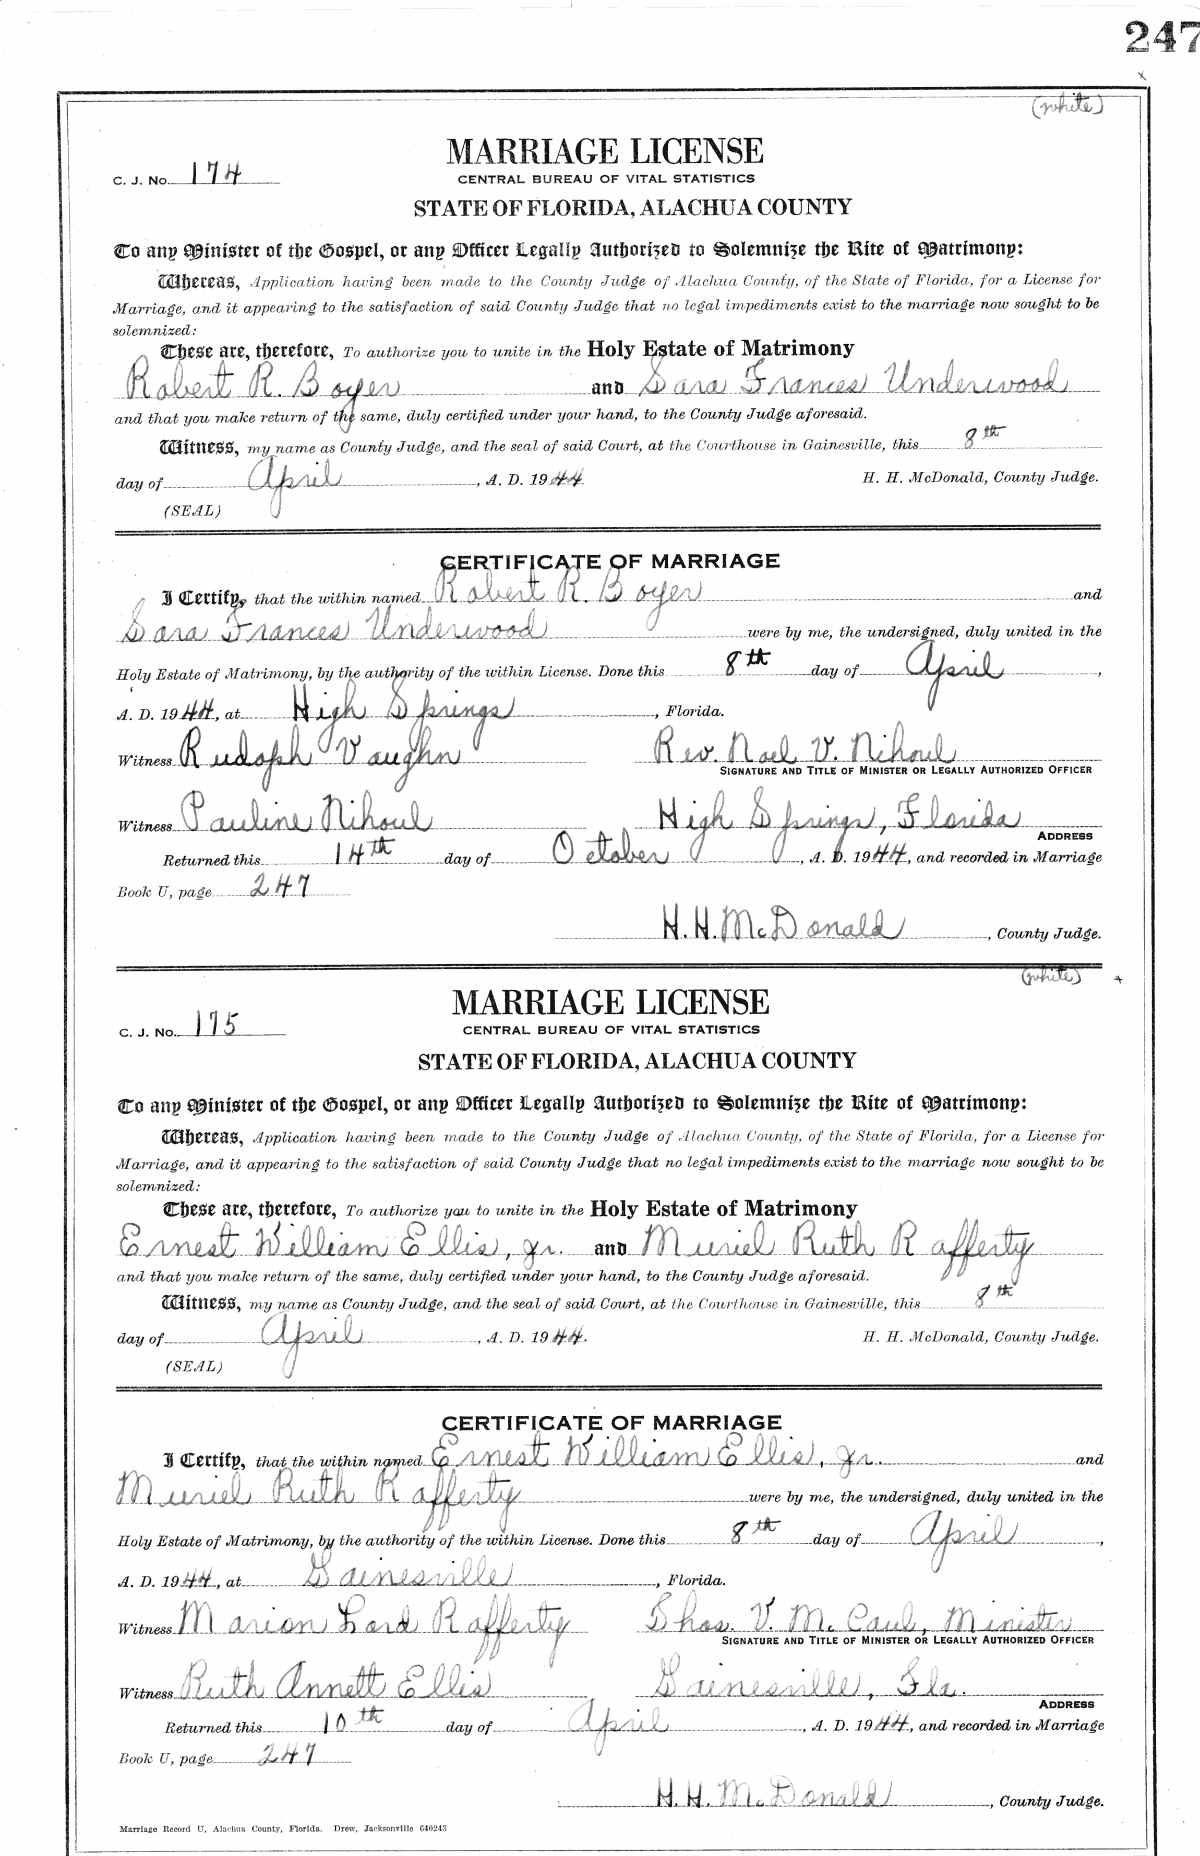 247
(white)
MARRIAGE LICENSE
C. J. No. 174
CENTRAL BUREAU OF VITAL STATISTICS
STATE OF FLORIDA, ALACHUA COUNTY
To any Minister of the Gospel, or any Officer Legally Authorized to Solemnize the Rite of Matrimony:
Whereas, Application having been made to the County Judge of Alachua County, of the State of Florida, for a License for
Marriage, and it appearing to the satisfaction of said County Judge that no legal impediments exist to the marriage now sought to be
solemnized:
These are, therefore, To authorize you to unite in the Holy Estate of Matrimony
Robert R. Boyer and Sara Frances Underwood
and that you make return of the same, duly certified under your hand, to the County Judge aforesaid.
Witness, my name as County Judge, and the seal of said Court, at the Courthouse in Gainesville, this 8th
day of April, A. D. 1944 H. H. McDonald, County Judge.
(SEAL)
CERTIFICATE OF MARRIAGE
I Certify, that the within named Robert R. Boyer and
Sara Frances Underwood were by me, the undersigned, duly united in the
Holy Estate of Matrimony, by the authority of the within License. Done this 8th day of April,
A. D. 1944, at High Springs, Florida.
Witness Rudoph Vaughn Rev. Noel V. Nihoul
SIGNATURE AND TITLE OF MINISTER OR LEGALLY AUTHORIZED OFFICER
Witness Pauline Nihoul High Springs, Florida
ADDRESS
Returned this 14th day of October, A. D. 1944, and recorded in Marriage
Book U, page 247
H. H. McDonald, County Judge.
(white)
MARRIAGE LICENSE
C. J. No. 175
CENTRAL BUREAU OF VITAL STATISTICS
STATE OF FLORIDA, ALACHUA COUNTY
To any Minister of the Gospel, or any Officer Legally Authorized to Solemnize the Rite of Matrimony:
Whereas, Application having been made to the County Judge of Alachua County, of the State of Florida, for a License for
Marriage, and it appearing to the satisfaction of said County Judge that no legal impediments exist to the marriage now sought to be
solemnized:
These are, therefore, To authorize you to unite in the Holy Estate of Matrimony
Ernest William Ellis, Jr. and Muriel Ruth Rafferty
and that you make return of the same, duly certified under your hand, to the County Judge aforesaid.
Witness, my name as County Judge, and the seal of said Court, at the Courthouse in Gainesville, this 8th
day of April, A. D. 1944. H. H. McDonald, County Judge.
(SEAL)
CERTIFICATE OF MARRIAGE
I Certify, that the within named Ernest William Ellis, Jr. and
Muriel Ruth Rafferty were by me, the undersigned, duly united in the
Holy Estate of Matrimony, by the authority of the within License. Done this 8th day of April,
A. D. 1944, at Gainesville, Florida.
Witness Marion Lord Rafferty V. McCaul, Minister
SIGNATURE AND TITLE OF MINISTER OR LEGALLY AUTHORIZED OFFICER
Witness Ruth Annett Ellis Gainesville, Fla.
ADDRESS
Returned this 10th day of April, A. D. 1944, and recorded in Marriage
Book U, page 247
H. H. McDonald, County Judge.
Marriage Record U, Alachua County, Florida. Drew, Jacksonville 640243